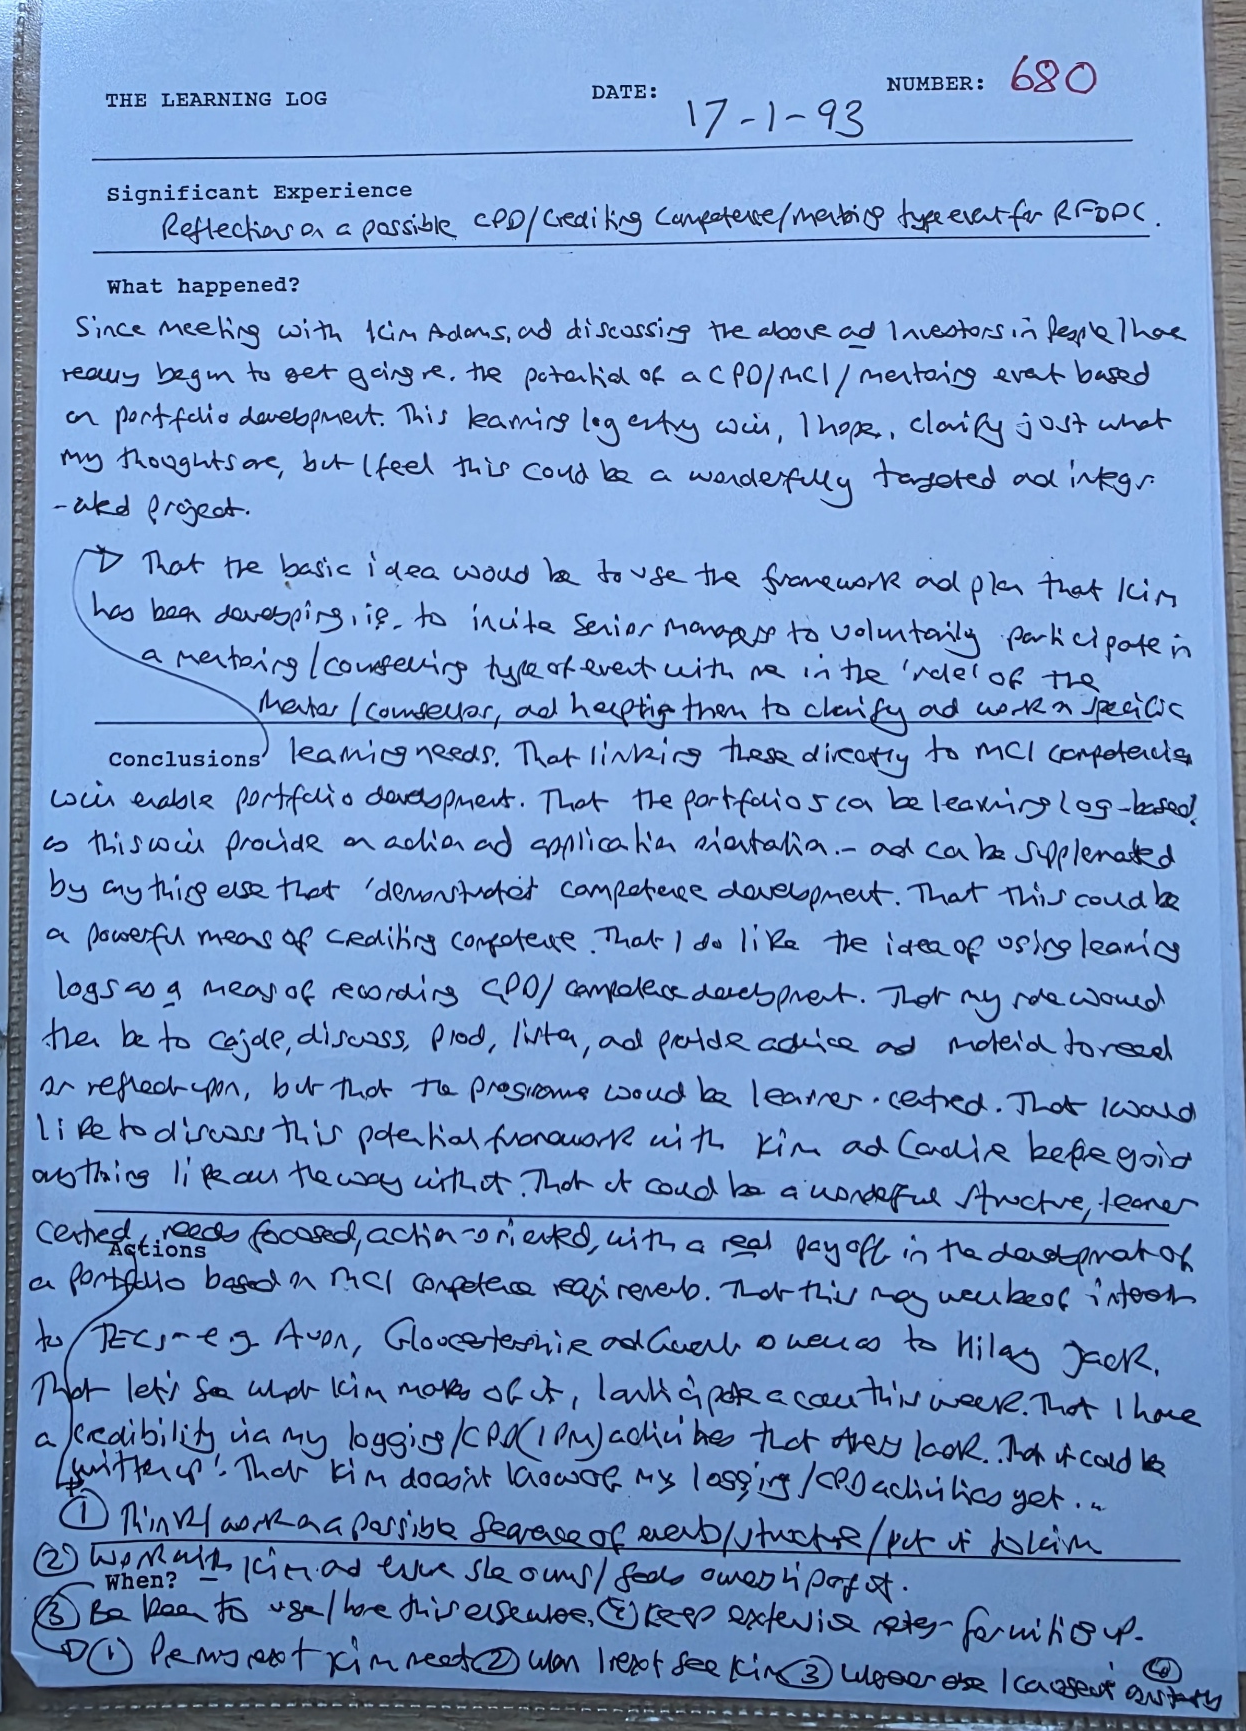 THE LEARNING LOG DATE: 17-1-93 NUMBER: 680
Significant Experience
Reflections on a possible CPD/Crediting Competence/mentoring type event for RFDDC.
What happened?
Since meeting with Kim Adams, and discussing the above and Investors in People I have
really begun to get going re. the potential of a CPD/MCI/mentoring event based
on portfolio development. This learning log entry will, I hope, clarify just what
my thoughts are, but I feel this could be a wonderfully targeted and integr
-ated project.
That the basic idea would be to use the framework and plan that Kim
has been developing, i.e. to invite senior managers to voluntarily participate in
a mentoring/counselling type of event with me in the 'role' of the
mentor/counsellor, and helping them to clarify and work on specific
Conclusions learning needs. That linking these directly to MCI competencies
will enable portfolio development. That the portfolios can be learning log-based,
as this will provide an action and application orientation - and can be supplemented
by anything else that 'demonstrates' competence development. That this could be
a powerful means of crediting competence. That I do like the idea of using learning
logs as a means of recording CPD/competence development. That my role would
then be to cajole, discuss, prod, listen, and provide advice and material to read
or reflect upon, but that the programme would be learner-centred. That I would
like to discuss this potential framework with Kim and before going
anything like all the way with it. That it could be a wonderful structure, learner
centred, needs focused, action-oriented, with a real pay off in the development of
Actions
a portfolio based on MCI competence requirements. That this may well be of interest
to TECs - e.g. Avon, Gloucestershire and Gwent as well as to Hilary Jack.
That let's see what Kim makes of it, I anticipate a call this week. That I have
a credibility via my logging/CPD(IPM) activities that they lack. That it could be
'written up'. That Kim doesn't know of my logging/CPD activities yet...
① Think/work on a possible sequence of events/structure/put it to Kim
② Work with Kim and ensure she owns/feels ownership of it.
When?
③ Be keen to use/have this elsewhere, ④ Keep extensive notes - for writing up.
① Per next Kim meet ② When I next see Kim ③ Wherever else I can use it ④